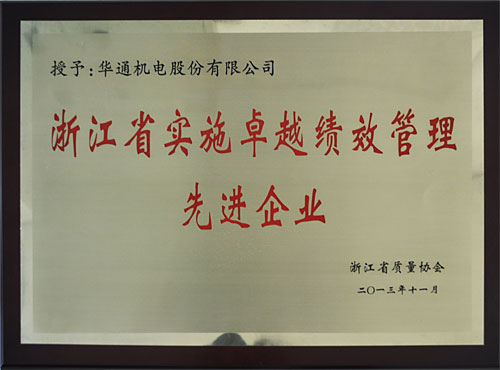 授予：华通机电股份有限公司
浙江省实施卓越绩效管理
先进企业
浙江省质量协会
二〇一三年十一月